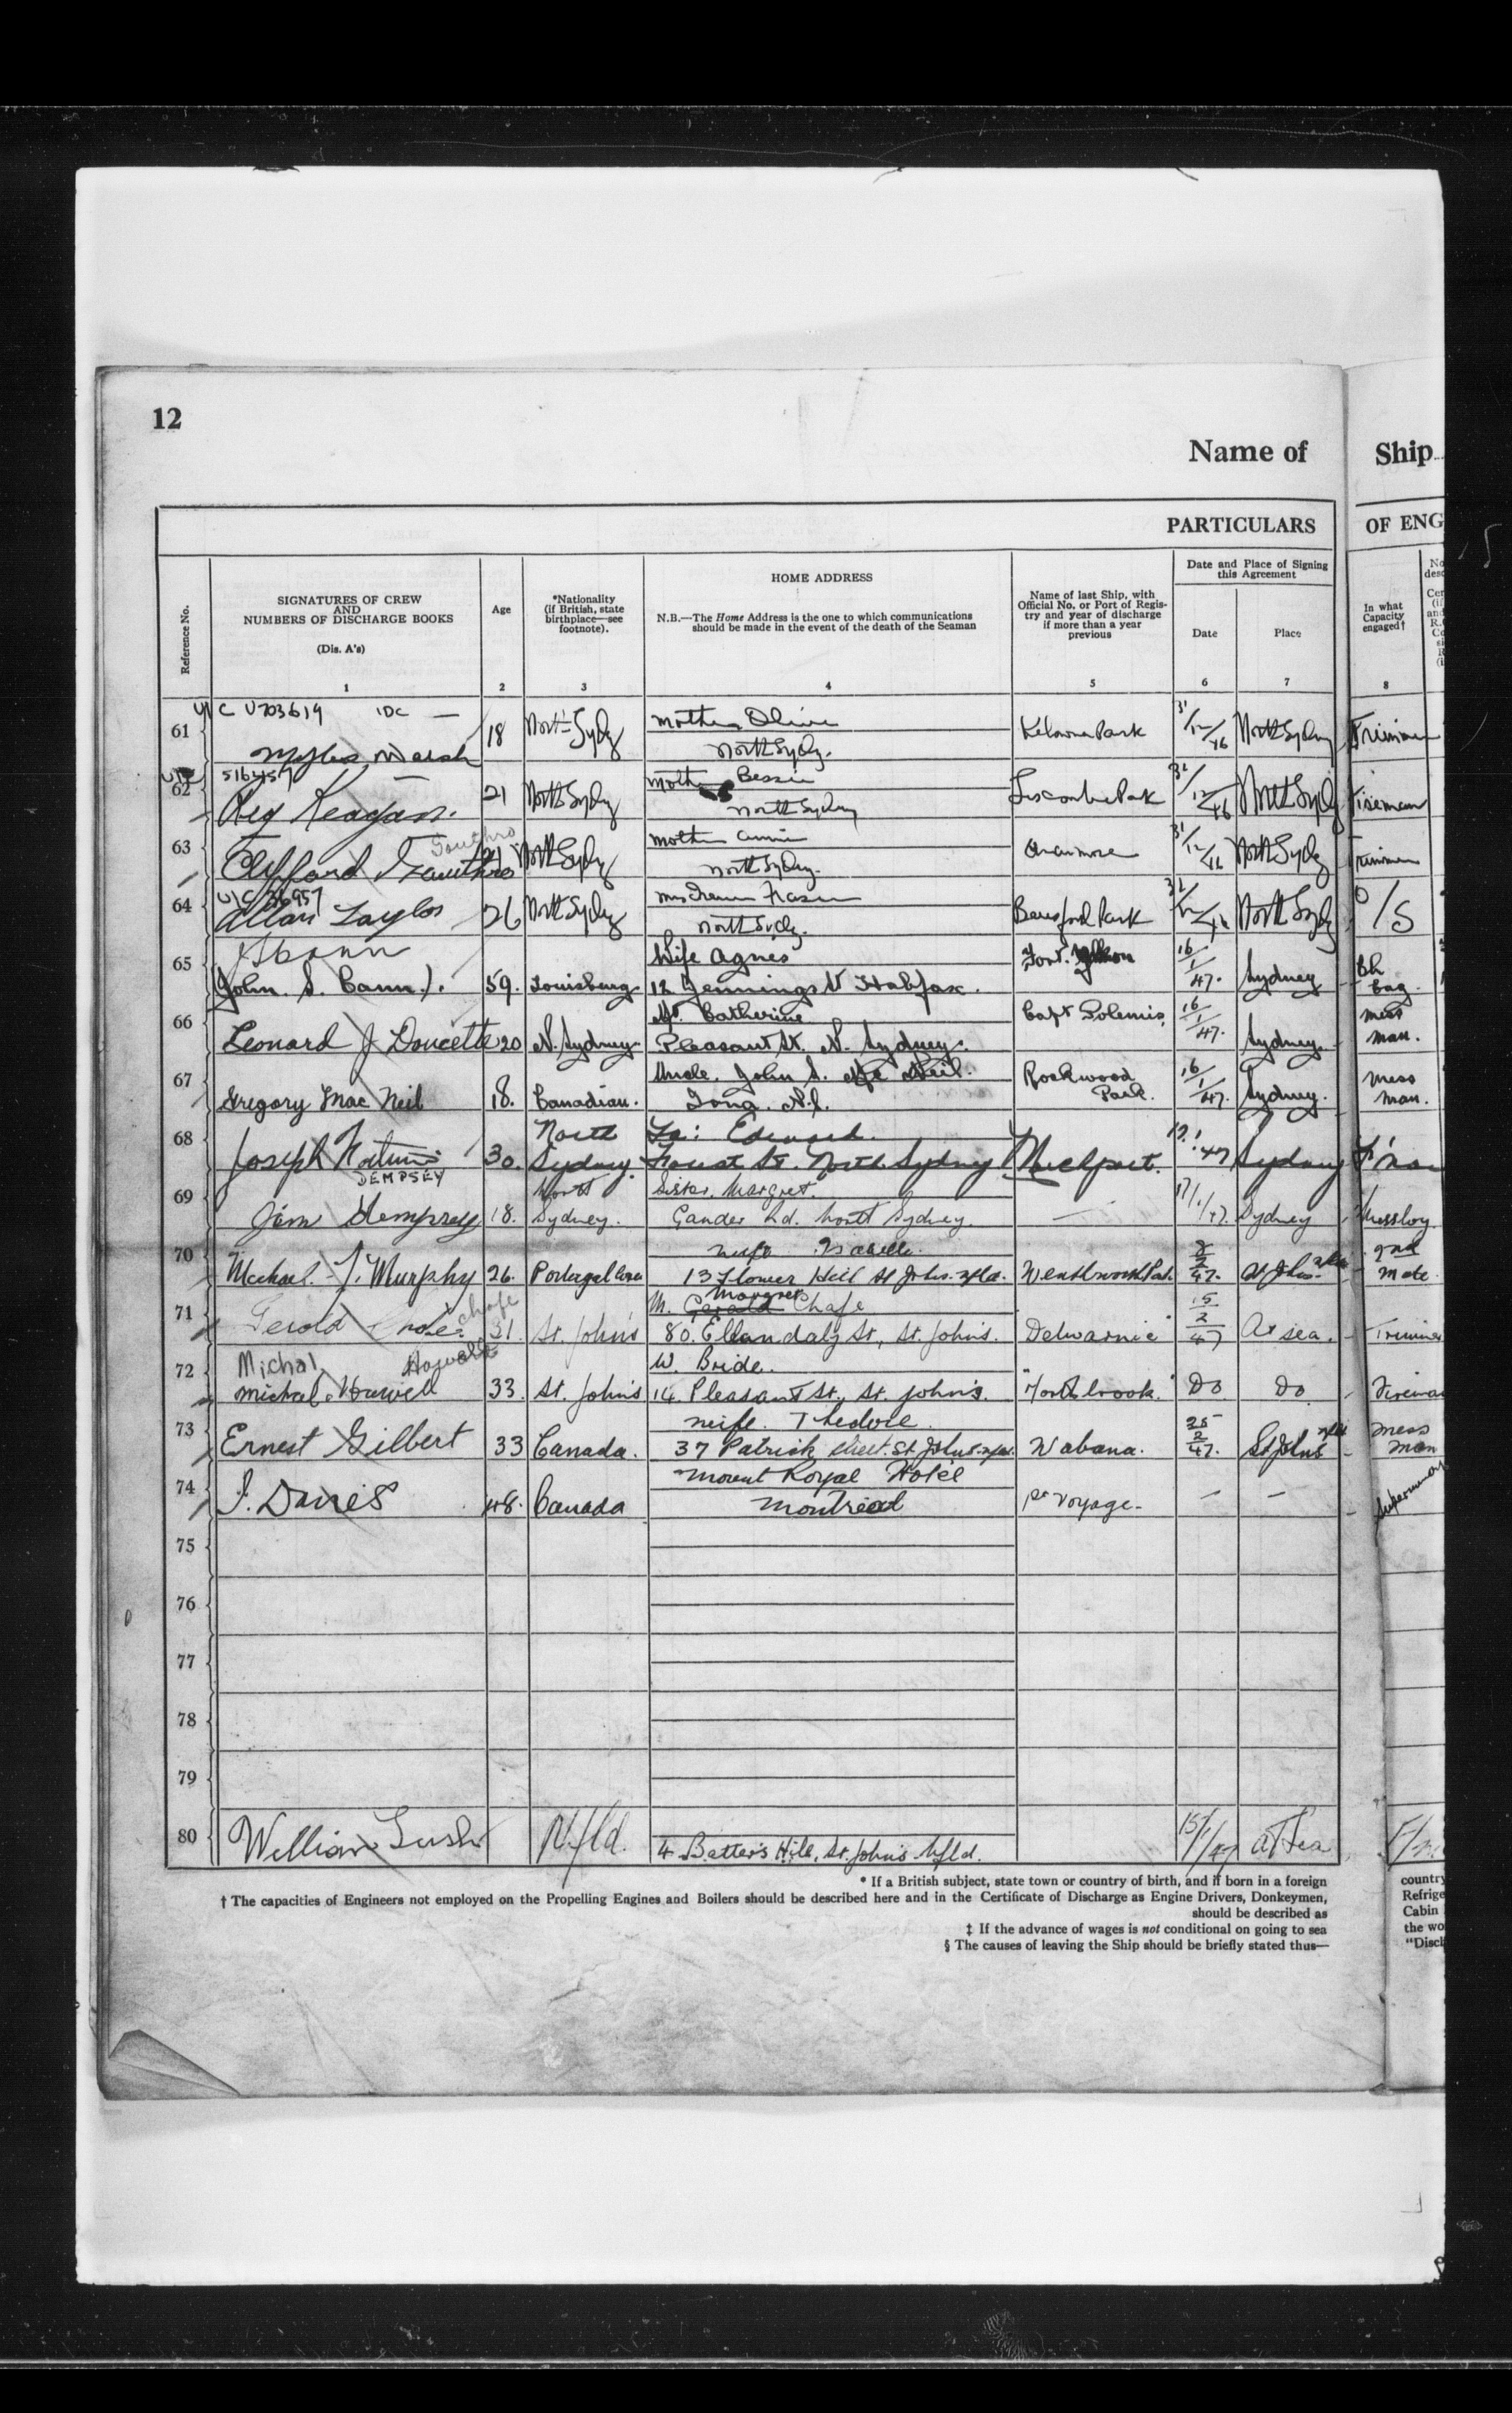 12
Name of Ship
PARTICULARS OF ENG
Reference No.
SIGNATURES OF CREW
AND
NUMBERS OF DISCHARGE BOOKS
(Dis. A's)
1
Age
2
*Nationality
(if British, state
birthplace—see
footnote).
3
HOME ADDRESS
N.B.—The Home Address is the one to which communications
should be made in the event of the death of the Seaman
4
Name of last Ship, with
Official No. or Port of Regis-
try and year of discharge
if more than a year
previous
5
Date and Place of Signing
this Agreement
Date
6
Place
7
In what
Capacity
engaged†
8
61 18 North Sydney Mother Olive
North Sydney. Kelowna Park 31/12/46 North Sydney Trimmer
62 516457
Reg Keagan. 21 North Sydney Mother Bessie
North Sydney Liscombe Park 31/12/46 North Sydney Fireman
63 Clifford North Sydney Mother Annie
North Sydney. 31/12/46 North Sydney Trimmer
64 Allan Taylor 26 North Sydney Fraser
North Sydney. Beresford Park 31/12/46 North Sydney O/S
65 John. S. Cann. 59. Louisburg. Wife Agnes
12 Jennings St Halifax. Fort 16/1/47. Sydney
66 Leonard J Doucette 20 N. Sydney. M. Catherine
Pleasant St. N. Sydney. 16/1/47. Sydney. Mess
Man.
67 Gregory Mac Neil 18. Canadian. Uncle. John S. Mc Neil.
Iona. N.S. Rockwood
Park. 16/1/47. Sydney. Mess
Man.
68 Joseph 30. North
Sydney. Fa: Edward.
Forest St. North Sydney 47 Sydney F'man
69 DEMPSEY
Jim Dempsey 18. North
Sydney. Sister. Margret.
Gander Rd. North Sydney. — 17/1/47. Sydney Messboy.
70 Michael. J. Murphy 26. Portugal Cove Wife Isabelle.
13 Flower Hill St Johns. Nfld. Wentworth Park 47. St Johns. Nfld 2nd
Mate
71 Chafe
Gerold 31. St. John's M. Margret Chafe
80. St, St. John's. Delwarnie 15/2/47 At sea. Trimmer
72 Michal
Michael 33. St. John's W. Bride.
14. Pleasant St., St. John's. Do Do Fireman
73 Ernest Gilbert 33 Canada. Wife. Thedore.
37 Patrick street. St. Johns. Nfld. Wabana. 25/2/47. St Johns Nfld Mess
Man
74 J. Davies 48. Canada Mount Royal Hotel
Montreal 1st Voyage. — — Supernumary
75
76
77
78
79
80 William Lush Nfld. 4 Batter's Hill, St. John's Nfld. 15/1/47 At Sea
* If a British subject, state town or country of birth, and if born in a foreign country
† The capacities of Engineers not employed on the Propelling Engines and Boilers should be described here and in the Certificate of Discharge as Engine Drivers, Donkeymen, Refrige
should be described as Cabin
‡ If the advance of wages is not conditional on going to sea the wo
§ The causes of leaving the Ship should be briefly stated thus— "Disch